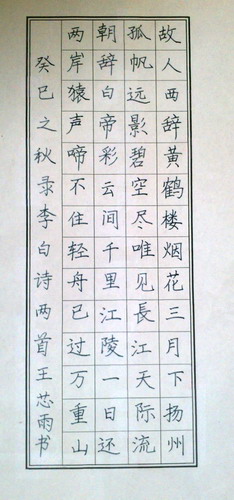 故人西辞黄鹤楼烟花三月下扬州
孤帆远影碧空尽唯见長江天际流
朝辞白帝彩云间千里江陵一日还
两岸猿声啼不住轻舟已过万重山
癸巳之秋录李白诗两首王芯雨书